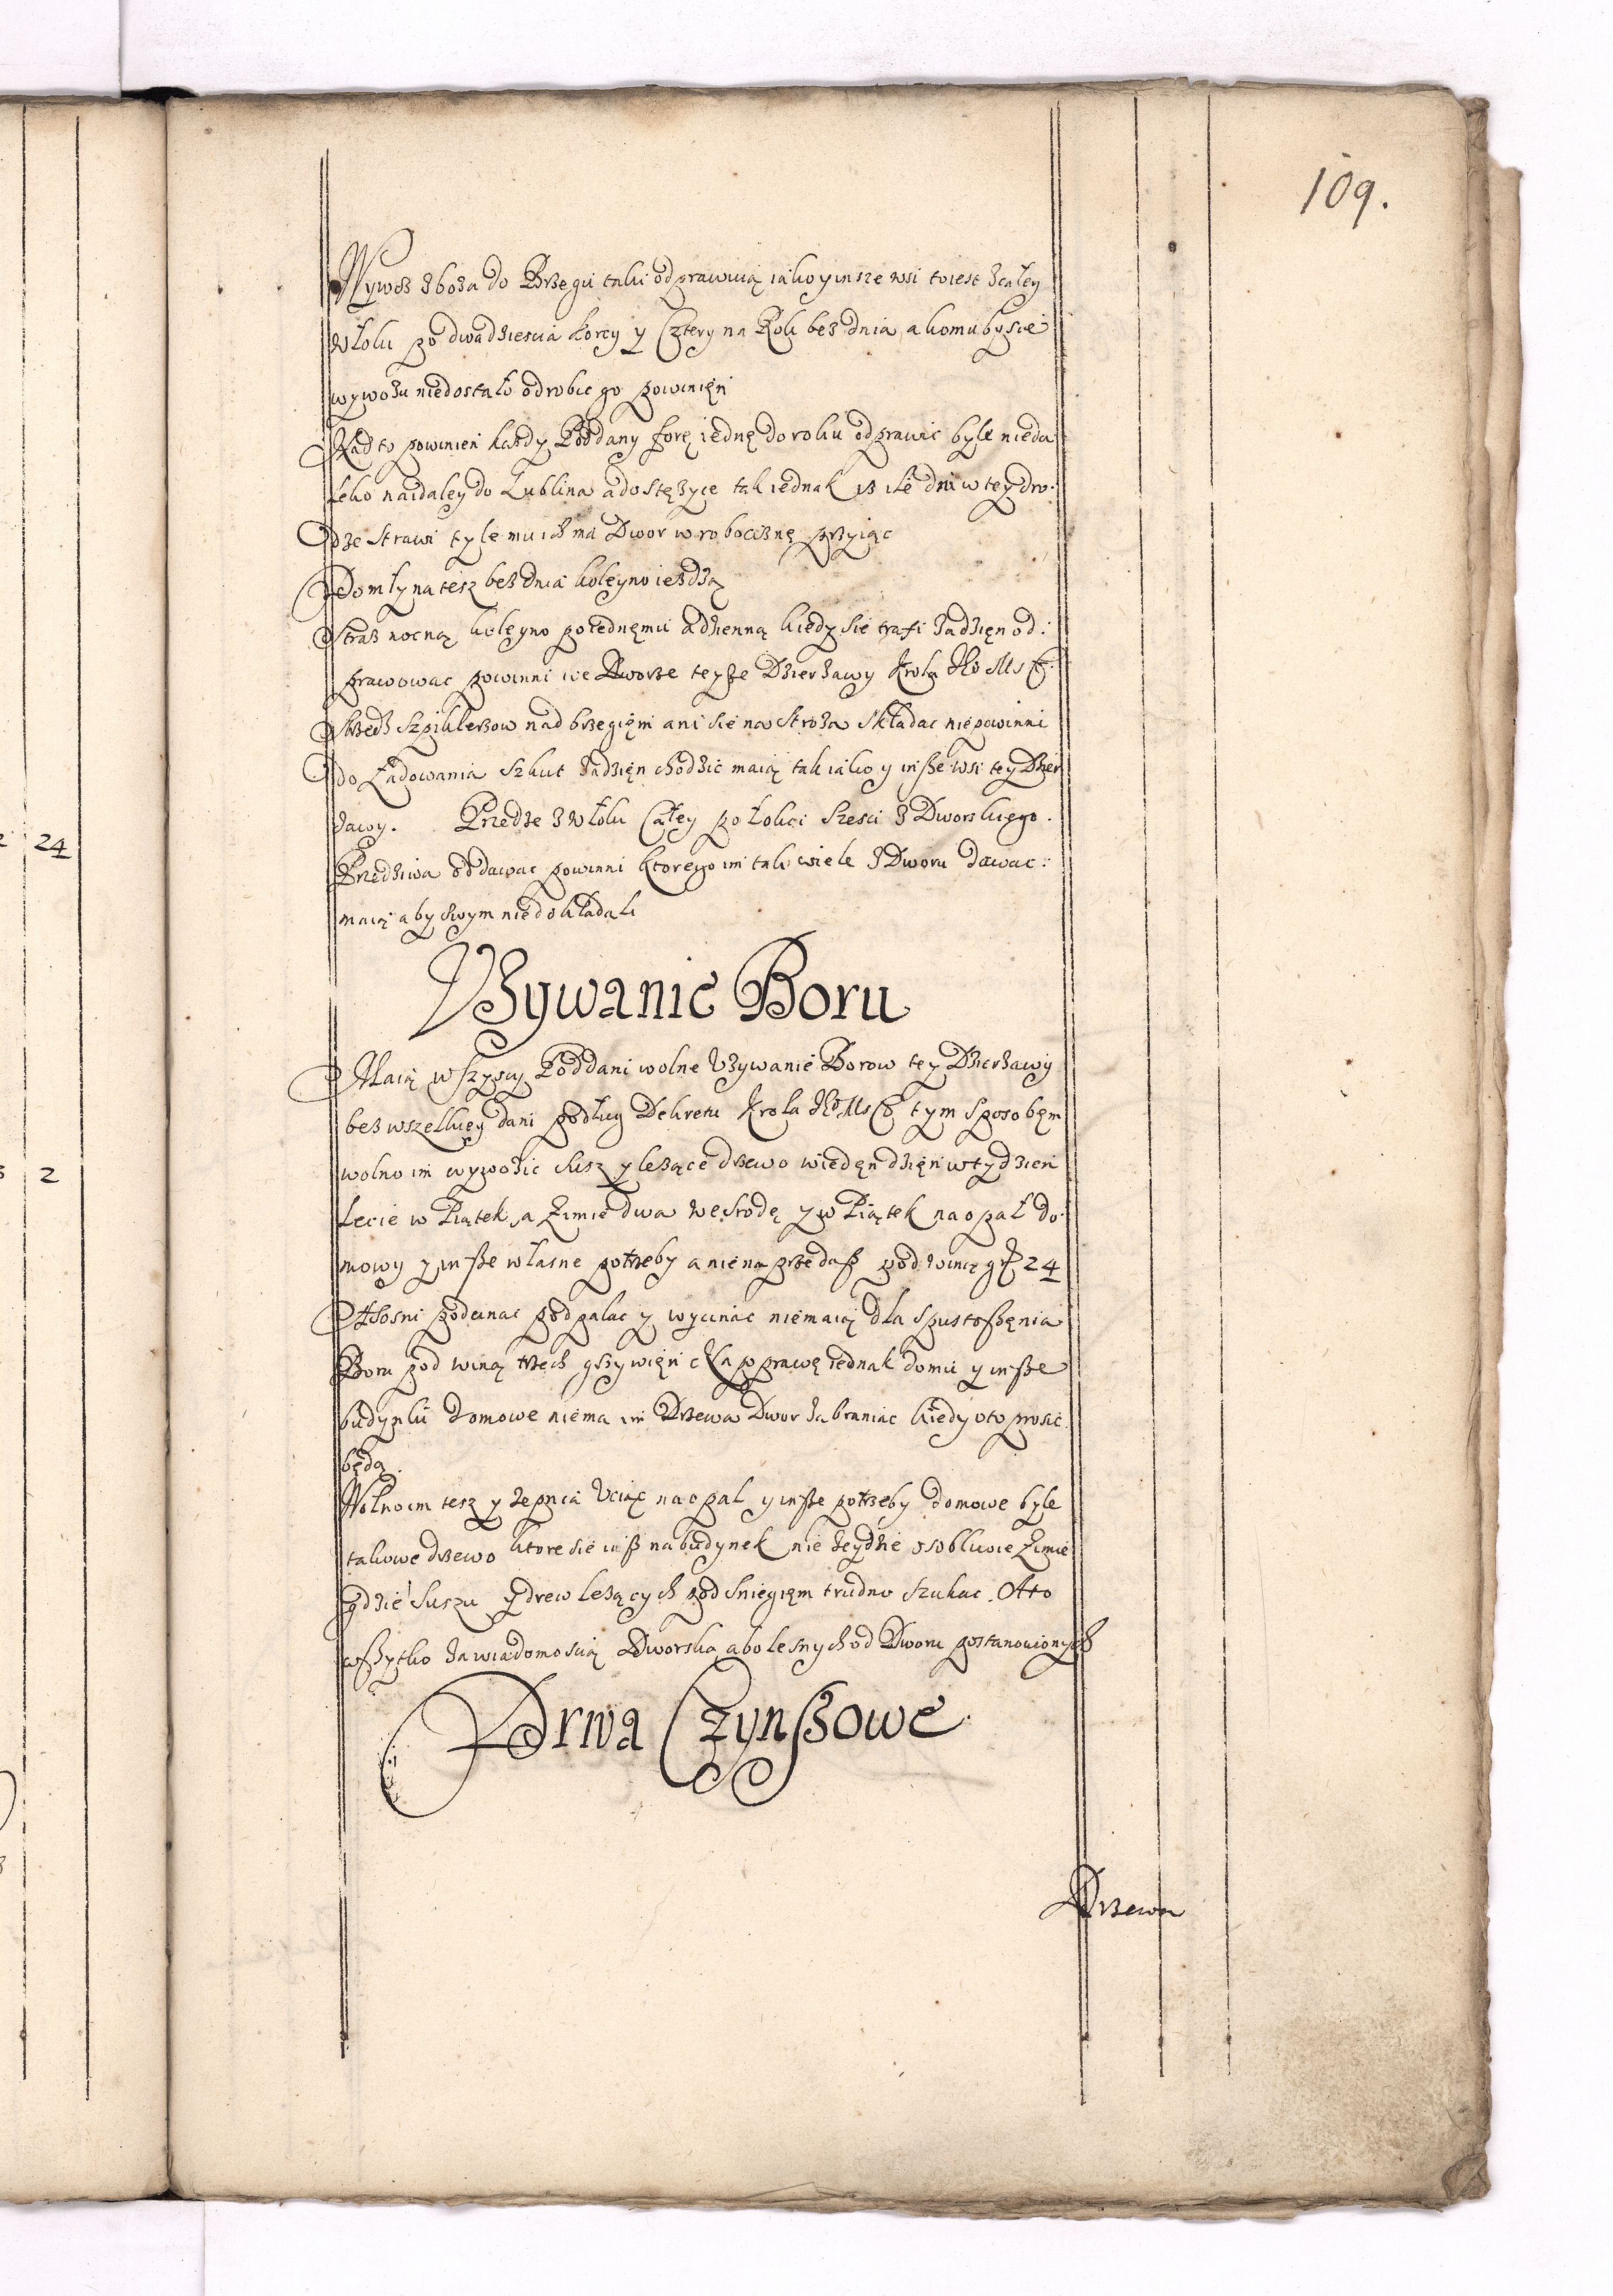 109.
Wywoz zboza do Brzegu taki odprawuią iako y insze wsi to iest z całey
włoki po dwadziescia korcy y Cztery na Rok bez dnia a komu by sie
wywozu niedostało odrobic go powinięn
Nadto powinien kazdy Poddany forę iednę do roku odprawic byle nieda
leko naidaley do Lublina a do Stęzyce tak iednak iz ile dni w tey dro:
dze strawi tyle mu ich ma Dwor w robociznę przyiąc
Do młyna tesz bez dnia koleyno iezdzą
Straz nocną koleyno po iednęmu a dzienną kiedy sie trafi za dzięn od:
prawowac powinni we Dworze teyże Dzierzawy Krola Je° Msc
strzedz szpiklerzow nad brzegięm ani sie na stroza składac niepowinni
do Ładowania szkut za dzięn chodzic maią tak iako y insze wsi tey Dzier
zawy. Przedze z włoki Całey po łokci szesci z Dworskiego
Przedziwa oddawac powinni ktorego im tak wiele z Dworu dawac:
maią aby swym niedokładali
Vzywanie Boru
Maią wszyscy Poddani wolne Vzywanie Borow tey Dzierzawy
bez wszelkiey dani podług Dekretu Krola Je° Msc tym sposobęm
wolno im wywozic susz y lezące drzewo w ieden dzięn w tydzien
Lecie w Piątek, a Zimie dwa we srodę y w Piątek na opał do:
mowy y insze własne potrzeby a nie na przedasz pod winą grz 24
Sosni podcinac podpalac y wycinac niemaią dla spustoszęnia
Boru pod winą trzech grzywięn Na poprawę iednak domu y insze
budynki domowe niema im Drzewa Dwor zabraniac kiedy o to prosic
będą.
Wolno im tesz y zepnia Vciąc na opal y insze potrzeby domowe byle
takowe drzewo ktore sie iusz na budynek nie zeydzie osobliwie Zimie
gdzie suszu y drew lezących pod sniegięm trudno szukac. A to
wszytko za wiadomoscią Dworską abo lesnych od Dworu postanowionych
Drwa Czynszowe
Drzewa
24
2